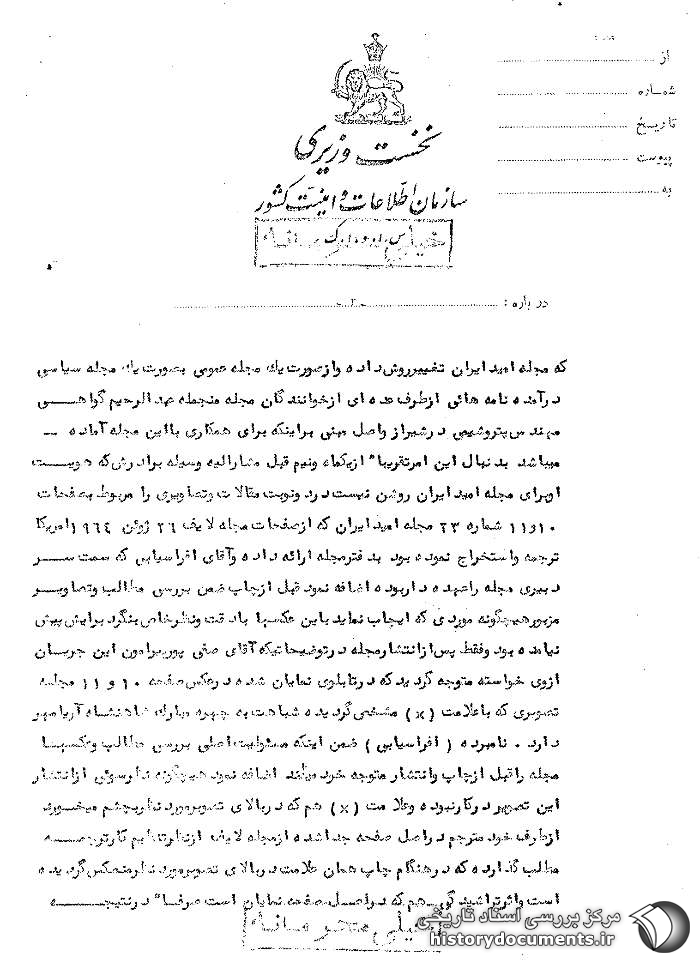 از
شماره
تاریخ
پیوست
به
نخست وزیری
سازمان اطلاعات و امنیت کشور
خیلی محرمانه
درباره : -۲-
که مجله امید ایران تغییر روش داده و از صورت یک مجله عمومی بصورت یک مجله سیاسی
درآمده نامه هائی از طرف عده ای از خوانندگان مجله منجمله عبدالرحیم گواهی
مهندس پتروشیمی در شیراز واصل مبنی براینکه برای همکاری با این مجله آماده -
میباشد بدنبال این امر تقریبا" از یکماه ونیم قبل مشارالیه وسیله برادرش که هویت
او برای مجله امید ایران روشن نیست در دونوبت مقالات وتصاویری را مربوط بصفحات
۱۰ و ۱۱ شماره ۲۳ مجله امید ایران که از صفحات مجله لایف ۲۶ ژوئن ۱۹۶۴ امریکا
ترجمه واستخراج نموده بود بدفتر مجله ارائه داده وآقای افراسیابی که سمت سر
دبیری مجله را عهده دار بوده اضافه نمود قبل از چاپ ضمن بررسی مطالب وتصاویر
مزبور هیچگونه موردی که ایجاب نماید باین عکسها با دقت ونظر خاص بنگرد برایش پیش
نیامده بود وفقط پس از انتشار مجله در توضیحاتیکه آقای صفی پور پیرامون این جریان
ازوی خواسته متوجه گردید که در تابلوی نمایان شده در عکس صفحه ۱۰ و ۱۱ مجله
تصویری که با علامت (×) مشخص گردیده شباهت به چهره مبارک شاهنشاه آریامهر
دارد . نامبرده ( افراسیابی ) ضمن اینکه مسئولیت اصلی بررسی مطالب وعکسهای
مجله را قبل از چاپ وانتشار متوجه خود میداند اضافه نمود هیچگونه نظر سوئی از انتشار
این تصویر در کار نبوده وعلامت (×) هم که در بالای تصویر مورد نظر بچشم میخورد
از طرف خود مترجم در اصل صفحه جدا شده از مجله لایف از نظر تنظیم کار ترجمه
مطلب گذارده که در هنگام چاپ همان علامت در بالای تصویر مورد نظر منعکس گردیده
است واثر تراشیدگی هم که در اصل صفحه نمایان است صرفا" در نتیجه
خیلی محرمانه
مرکز بررسی اسناد تاریخی
historydocuments.ir